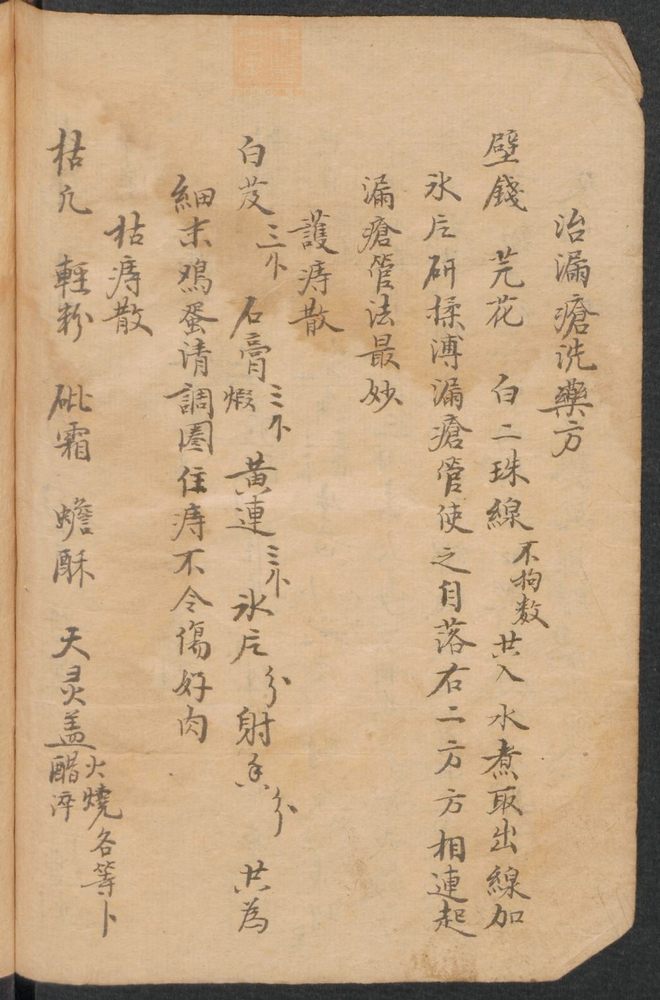 治漏瘡洗藥方
壁錢 芫花 白二珠線不拘数 共入水煮取出線加
氷片研揉溥漏瘡管使之自落右二方方相連起
漏瘡管法最妙
護痔散
白芨三卜 石膏煅三卜 黃連三卜 氷片分 射香分 共為
細末鸡蛋清調圈住痔不令傷好肉
枯痔散
枯凡 輕粉 砒霜 蟾酥 天灵盖火燒醋淬 各等卜